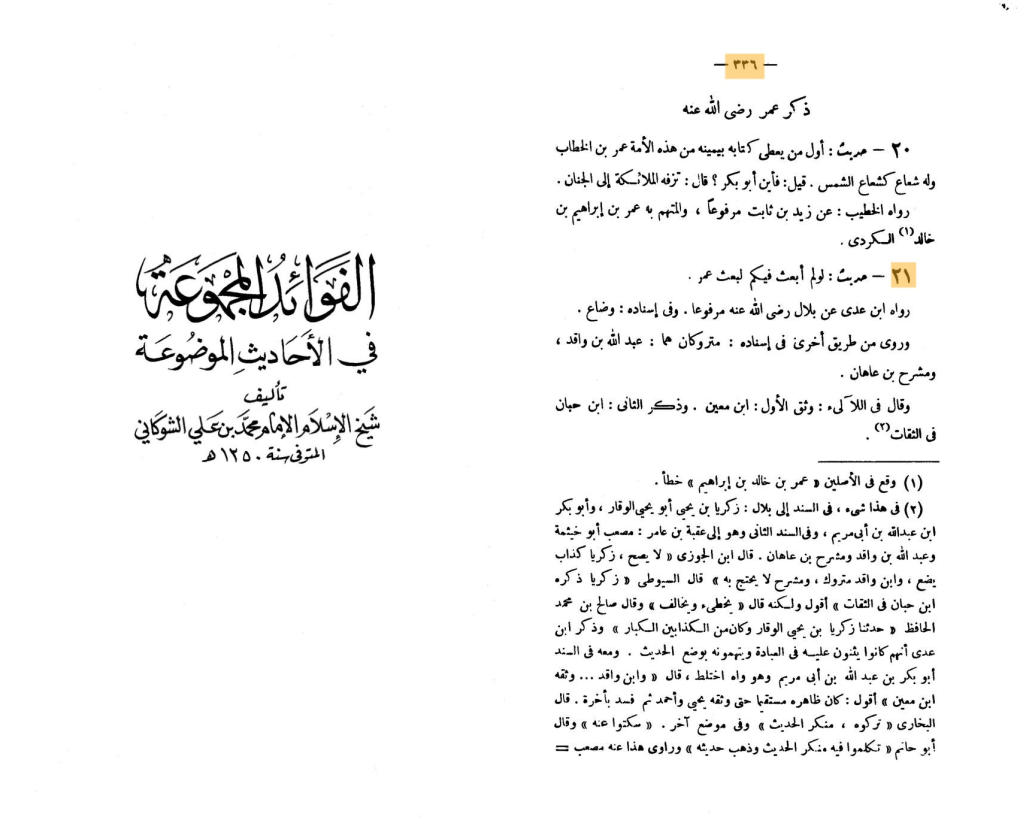 — ٣٣٦ —
ذكر عمر رضى الله عنه
٢٠ — حديث : أول من يعطى كتابه بيمينه من هذه الأمة عمر بن الخطاب
وله شعاع كشعاع الشمس . قيل : فأين أبو بكر ؟ قال : تزفه الملائكة إلى الجنان .
رواه الخطيب : عن زيد بن ثابت مرفوعاً ، والمتهم به عمر بن إبراهيم بن
خالد(١) الكردى .
٢١ — حديث : لولم أبعث فيكم لبعث عمر .
رواه ابن عدى عن بلال رضى الله عنه مرفوعا . وفى إسناده : وضاع .
وروى من طريق أخرى فى إسناده : متروكان هما : عبد الله بن واقد ،
ومشرح بن عاهان .
وقال فى اللآلىء : وثق الأول : ابن معين . وذكر الثانى : ابن حبان
فى الثقات(٢) .
(١) وقع فى الأصلين « عمر بن خالد بن إبراهيم » خطأ .
(٢) فى هذا شىء ، فى السند إلى بلال : زكريا بن يحيى أبو يحيى الوقار ، وأبو بكر
ابن عبدالله بن أبى مريم ، وفى السند الثانى وهو إلى عقبة بن عامر : مصعب أبو خيثمة
وعبد الله بن واقد ومشرح بن عاهان . قال ابن الجوزى « لا يصح ، زكريا كذاب
يضع ، وابن واقد متروك ، ومشرح لا يحتج به » قال السيوطى « زكريا ذكره
ابن حبان فى الثقات » أقول ولكنه قال « يخطىء ويخالف » وقال صالح بن محمد
الحافظ « حدثنا زكريا بن يحيى الوقار وكان من الكذابين الكبار » وذكر ابن
عدى أنهم كانوا يثنون عليه فى العبادة ويتهمونه بوضع الحديث . ومعه فى السند
أبو بكر بن عبد الله بن أبى مريم وهو واه اختلط ، قال « وابن واقد ... وثقه
ابن معين » أقول : كان ظاهره مستقيما حتى وثقه يحيى وأحمد ثم فسد بأخرة . قال
البخارى « تركوه ، منكر الحديث » وفى موضع آخر . « سكتوا عنه » وقال
أبو حاتم « تكلموا فيه منكر الحديث وذهب حديثه » وراوى هذا عنه مصعب =
الفوائد المجموعة
في الأحاديث الموضوعة
تأليف
شيخ الإسلام الإمام محمد بن علي الشوكاني
المتوفى سنة ١٢٥٠ هـ